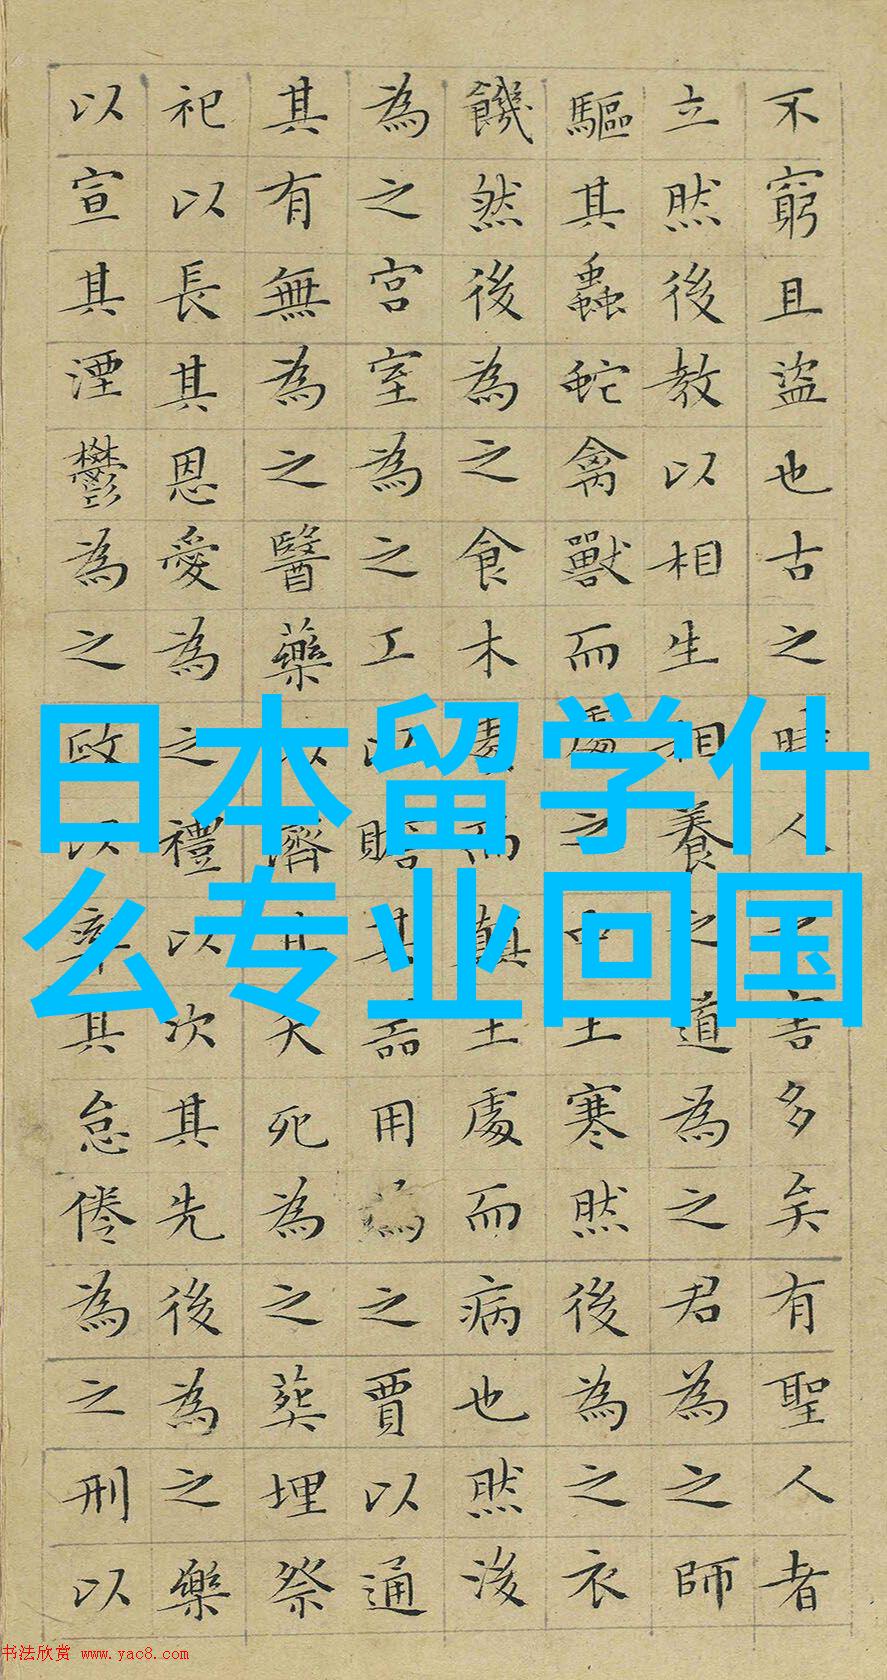 不窮且盜也古之時人之害多矣有聖人者
立然後教以相生相養之道為之君為之師
驅其蟲蛇禽獸而處之中土寒然後為之衣
饑然後為之食木處而顛土處而病也然後
為之宮室為之工以贍其器用為之賈以通
其有無為之醫藥以濟其夭死為之葬埋祭
祀以長其恩愛為之禮以次其先後為之樂
以宣其湮鬱為之政以率其怠倦為之刑以
日本留学什
么专业回国
书法欣赏 www.yac8.com